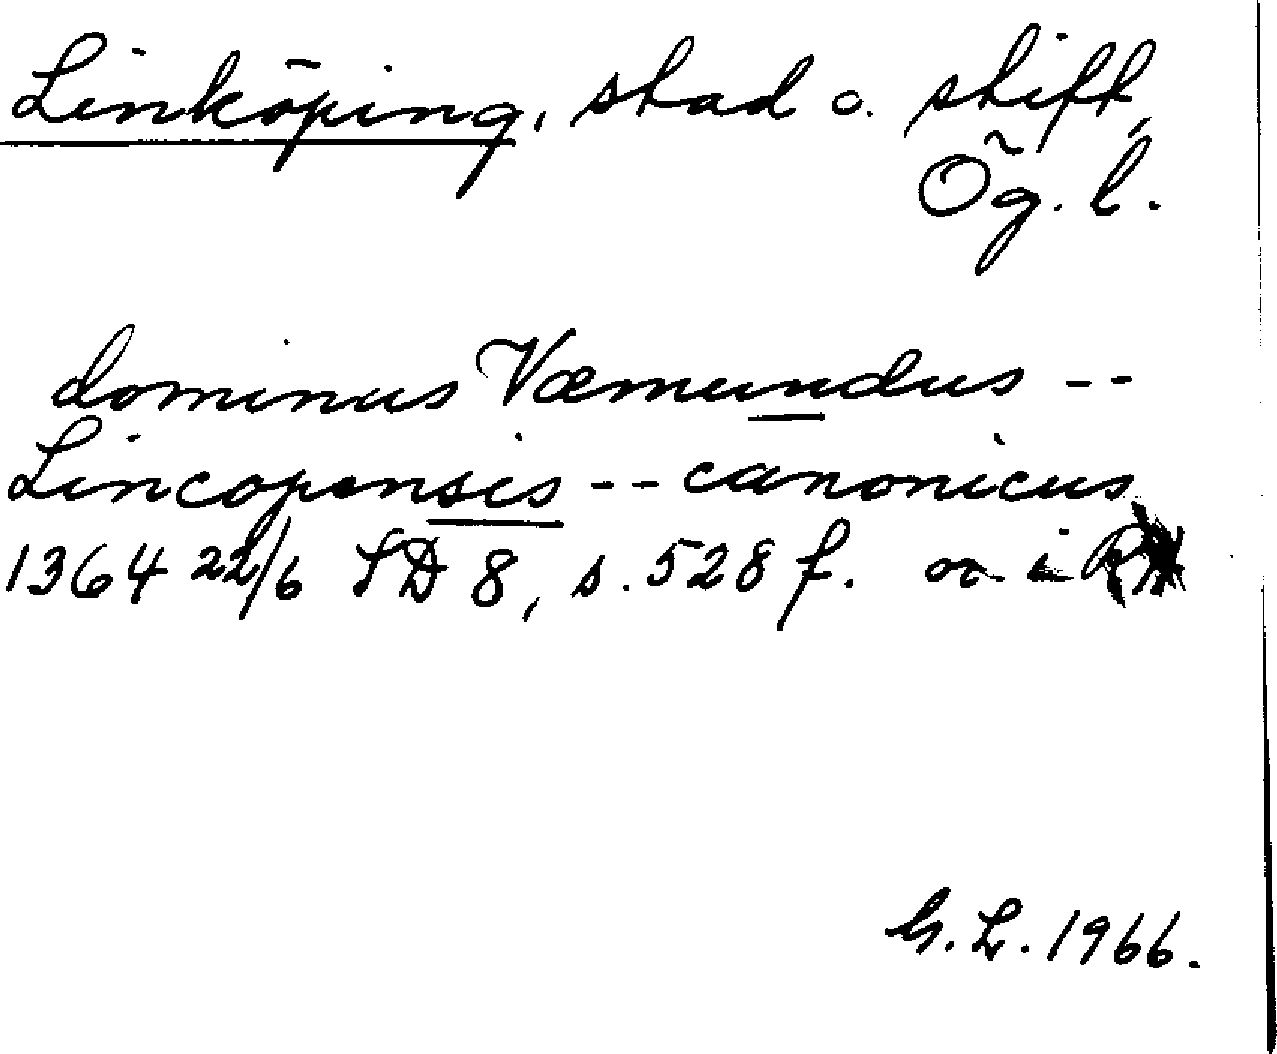 Linköping, stad o. stift,
Ög. l.
dominus Væmundus --
Lincopensis -- canonicus
1364 22/6 SD 8, s. 528 f. or i
G. L. 1966.